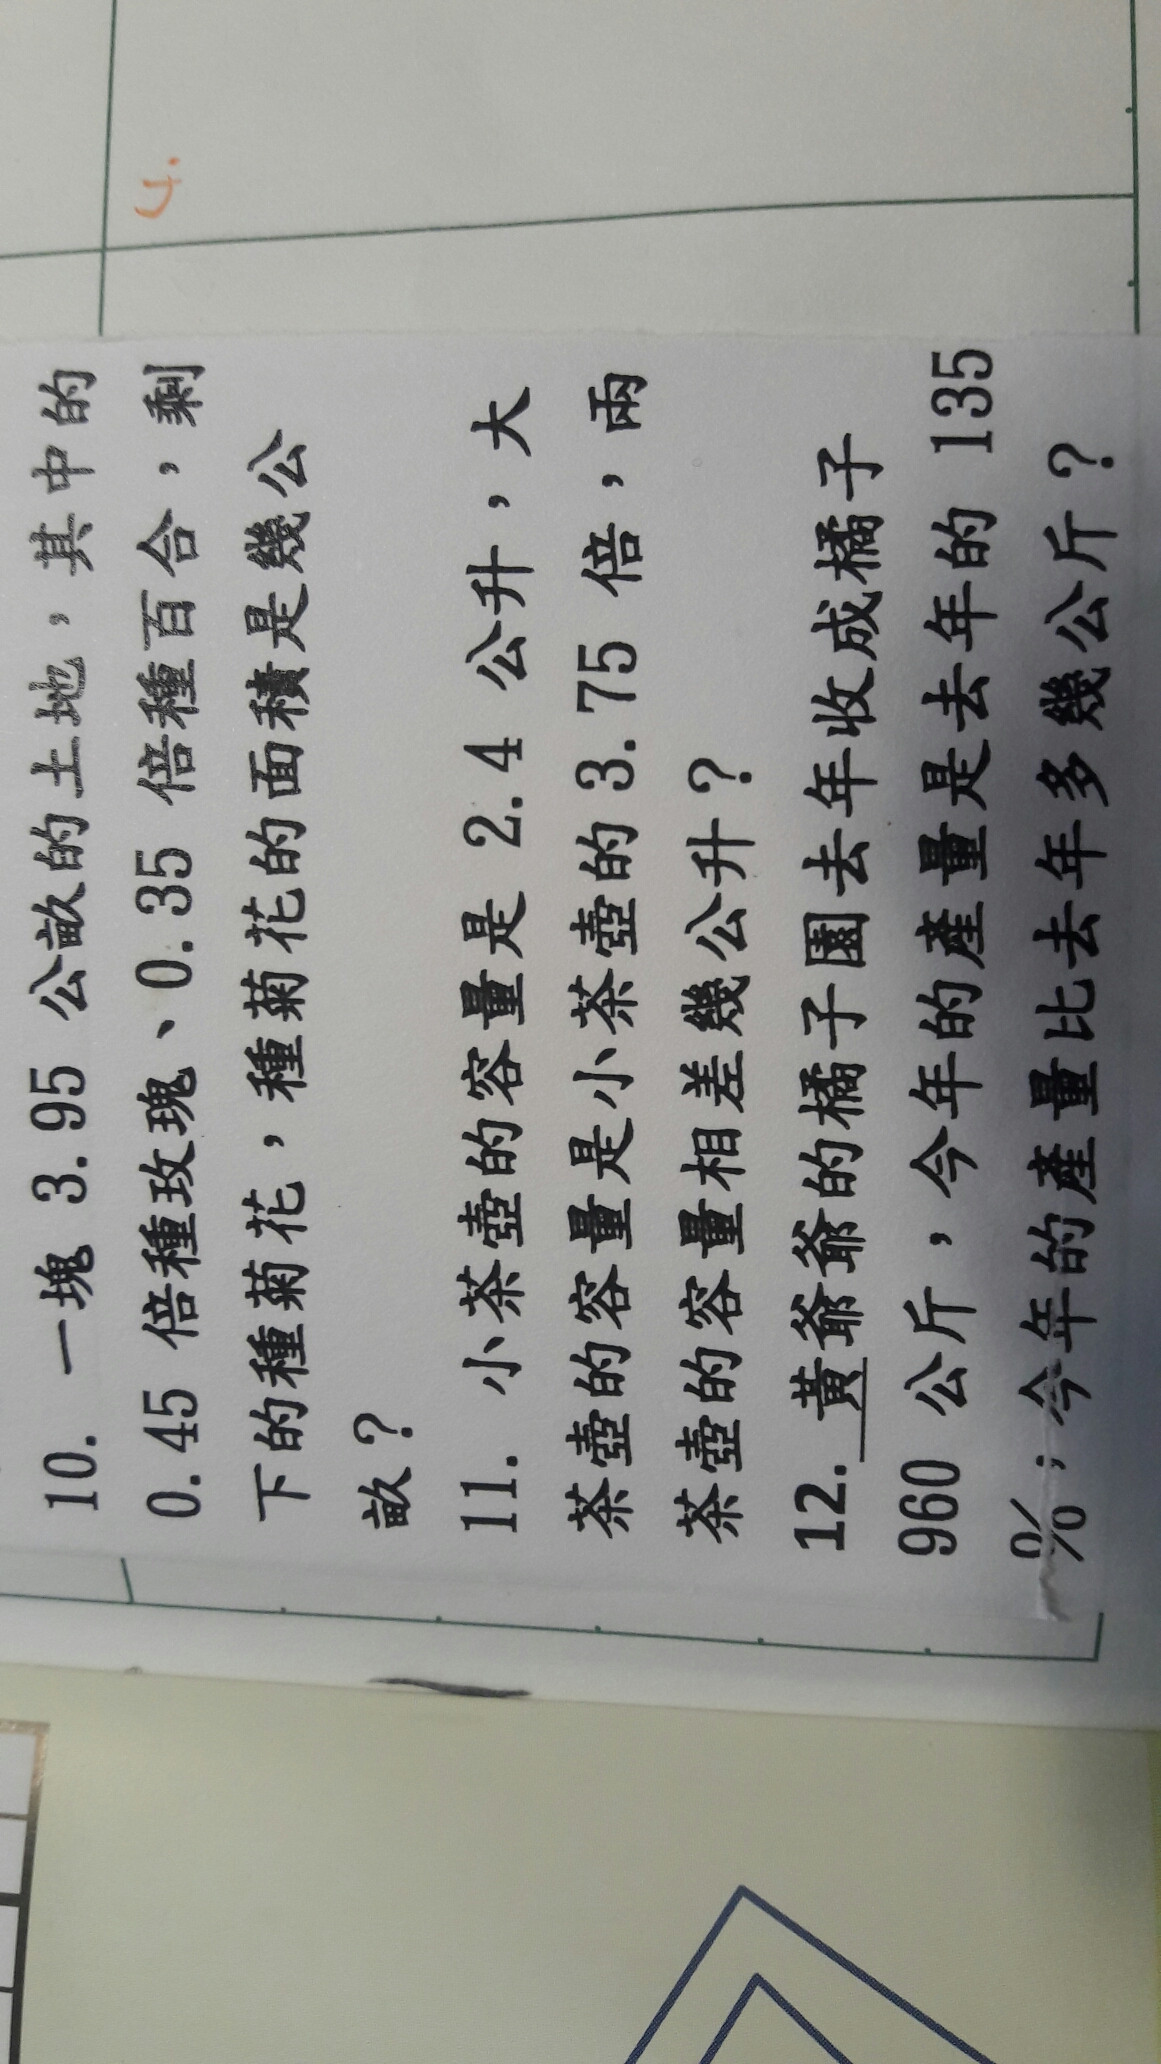 10. 一塊 3.95 公畝的土地，其中的
0.45 倍種玫瑰、0.35 倍種百合，剩
下的種菊花，種菊花的面積是幾公
畝？
11. 小茶壺的容量是 2.4 公升，大
茶壺的容量是小茶壺的 3.75 倍，兩
茶壺的容量相差幾公升？
12. 黃爺爺的橘子園去年收成橘子
960 公斤，今年的產量是去年的 135
%；今年的產量比去年多幾公斤？